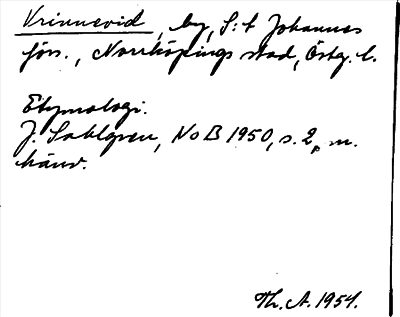 Vrinnevid, by, S:t Johannes
förs., Norrköpings stad, Östg. l.
Etymologi.
J. Sahlgren, NoB 1950, s. 2, m.
hänv.
Th. A. 1954.